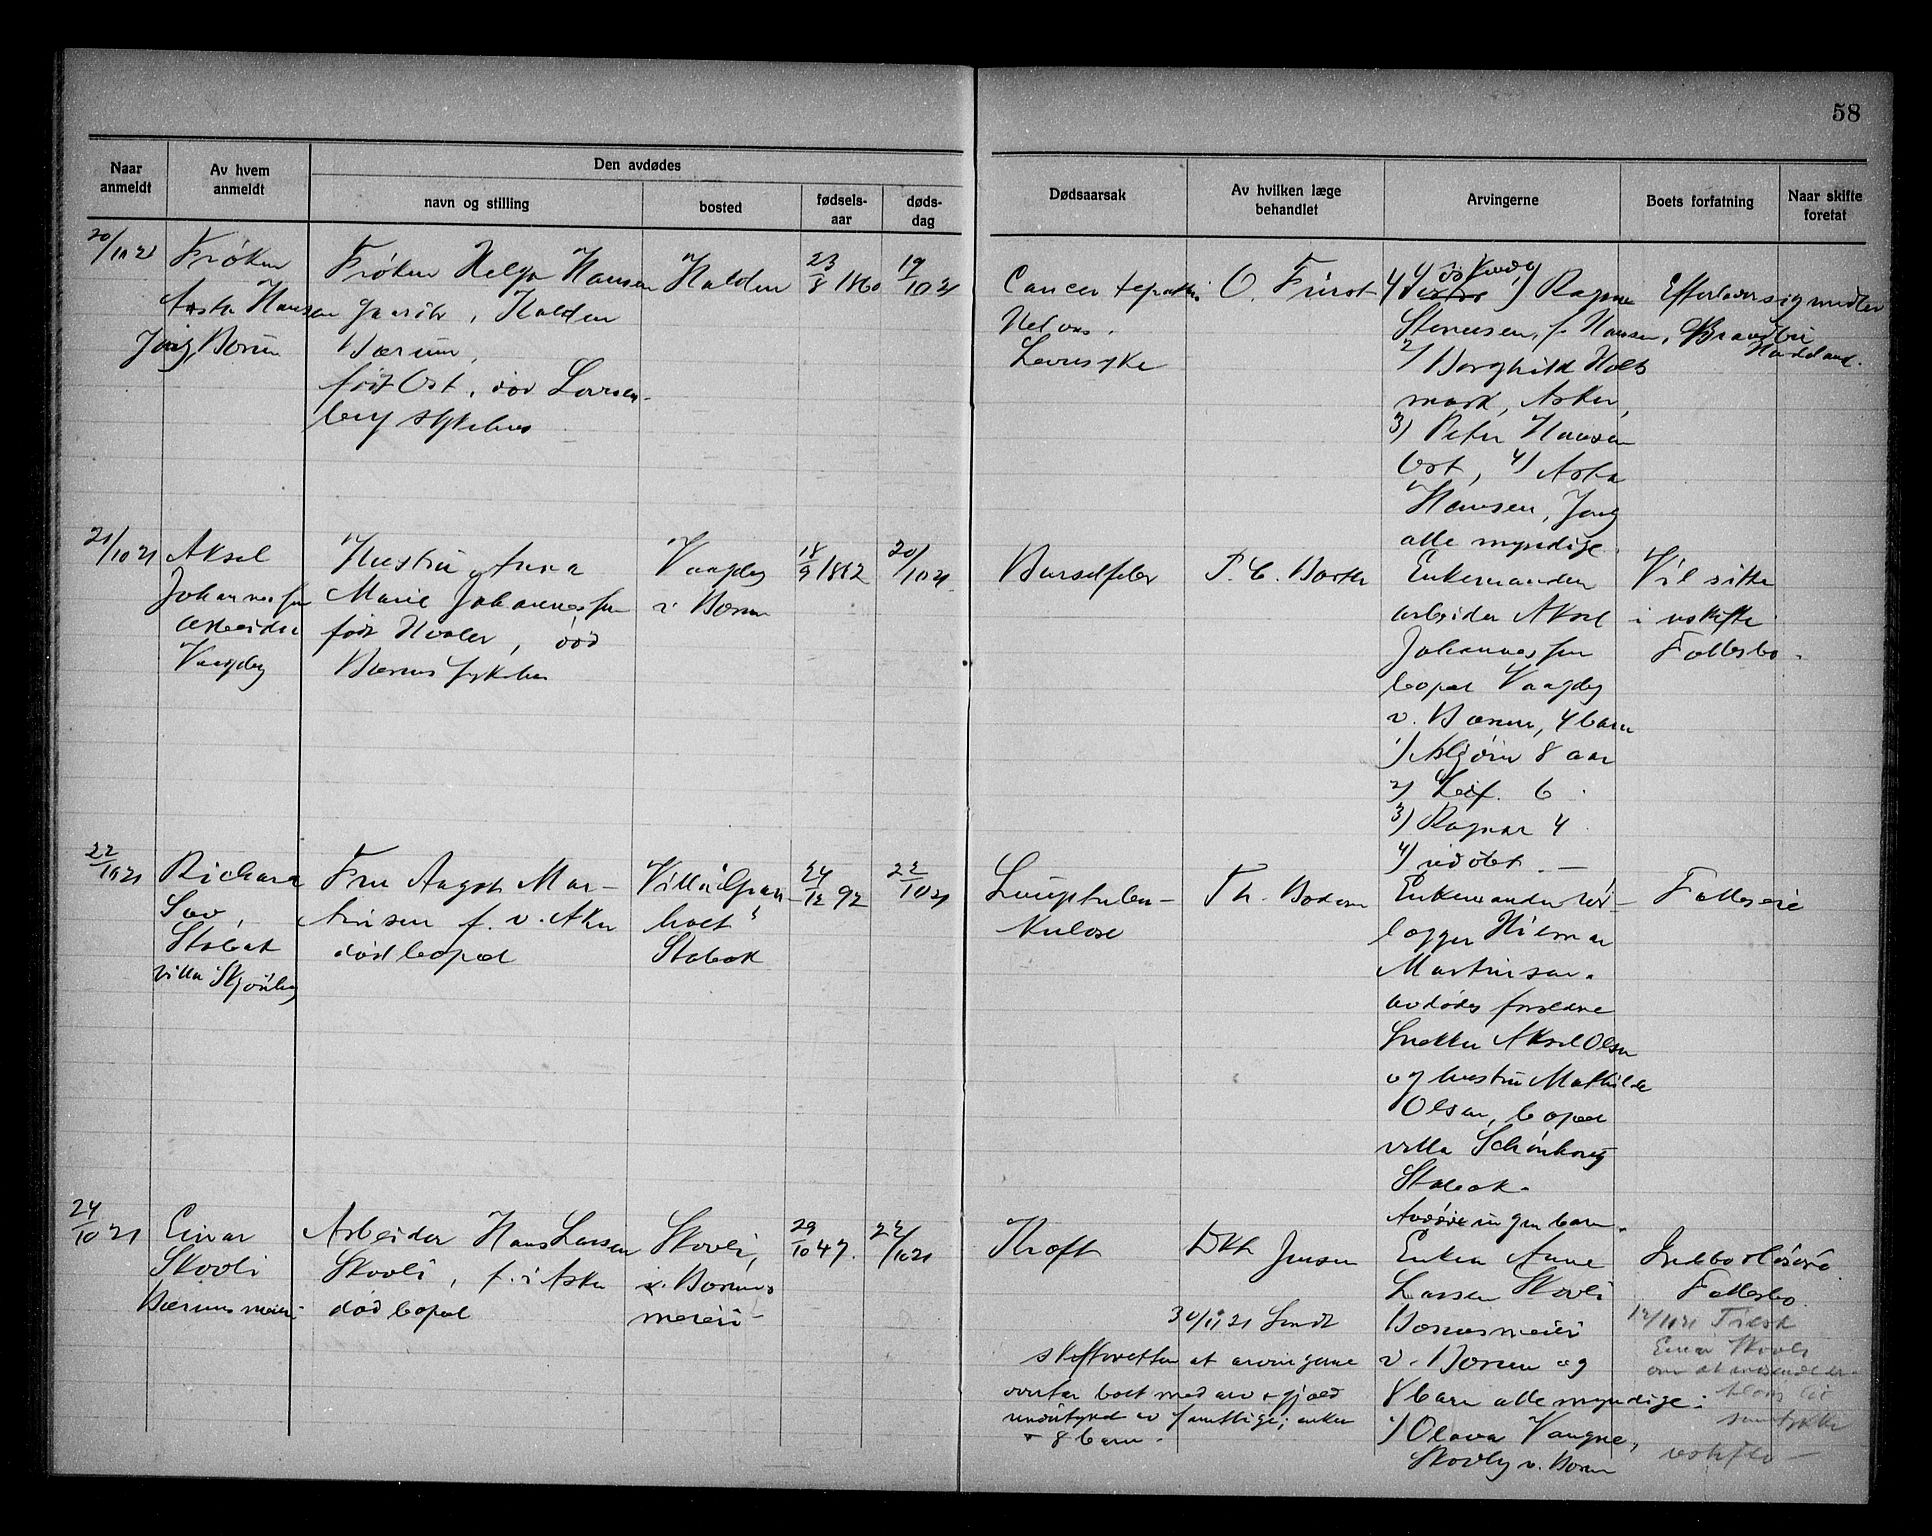 58
Naar anmeldt
Av hvem anmeldt
Den avdødes
navn og stilling
bosted
fødsels-aar
døds-dag
Dødsaarsak
Av hvilken læge behandlet
Arvingerne
Boets forfatning
Naar skifte foretat
20/10 21
Frøken
Asta Hansen
Jong Bærum
Frøken Helga Hansen
Halden
Bærum,
født Øst, død Lovisen-
berg sykehus
Halden
23/8 1860
19/10 21
Cancer hepatis
Leversyke
O. Fürst
1) Ragna
Stenersen, f. Hansen,
2) Borghild Holt
mark, Asker,
3) Peter Hansen
Øst, 4) Asta
Hansen, Jong
alle myndige
Efterlater sig midler
21/10 21
Aksel
Johannessen
arbeider
Vaageby
Hustru Anna
Marie Johannessen
født Hvaler, død
Bærums sykehus
Vaageby
i Bærum
18/9 1882
20/10 21
Barselfeber
P. C. Barth
Enkemanden
arbeider Aksel
Johannessen
bopæl Vaageby
i Bærum, 4 barn
1) Asbjørn 8 aar
2) Leif. 6
3) Ragnar 4
4) udøbt
Vil sitte
i uskifte
Fællesbo.
22/10 21
Richard
Stabæk
villa Skjønhaug
Fru Augsta Mar-
tinsen f. i Aker
død bopæl
Villa Gran-
holt
Stabæk
24/12 92
22/10 21
Lungetuber-
kulose
Th. Bødern
Enkemanden rør-
lægger Hilmar
Martinsen.
avdødes forældre
Snekker Aksel Olsen
og hustru Mathilde
Olsen, bopæl
villa Schönhaug
Stabæk.
Avdøde ingen barn.
Fælleseie
24/10 21
Einar
Skovli
Bærums meieri
Arbeider Hans Larsen
Skovli, f. i Asker
død bopæl
Skovli,
i Bærums
meieri
29/10 47.
22/10 21
Kræft
Dkt Jensen
Enken Anne
Larsen Skovli
Bærumsmeieri
i Bærum og
8 barn alle myndige:
1) Olava Vangne,
Skovly i Bærum
Indbo løsøre
Fællesbo.
30/11 21 Sendt
skifteretten at arvingerne
overtar boet med arv + gjæld
undertegnet av samtlige; enken
+ 8 barn.
12/11 21 Tilsk
Einar Skovli
om at indsende er-
klæring til
samtykke
uskifte